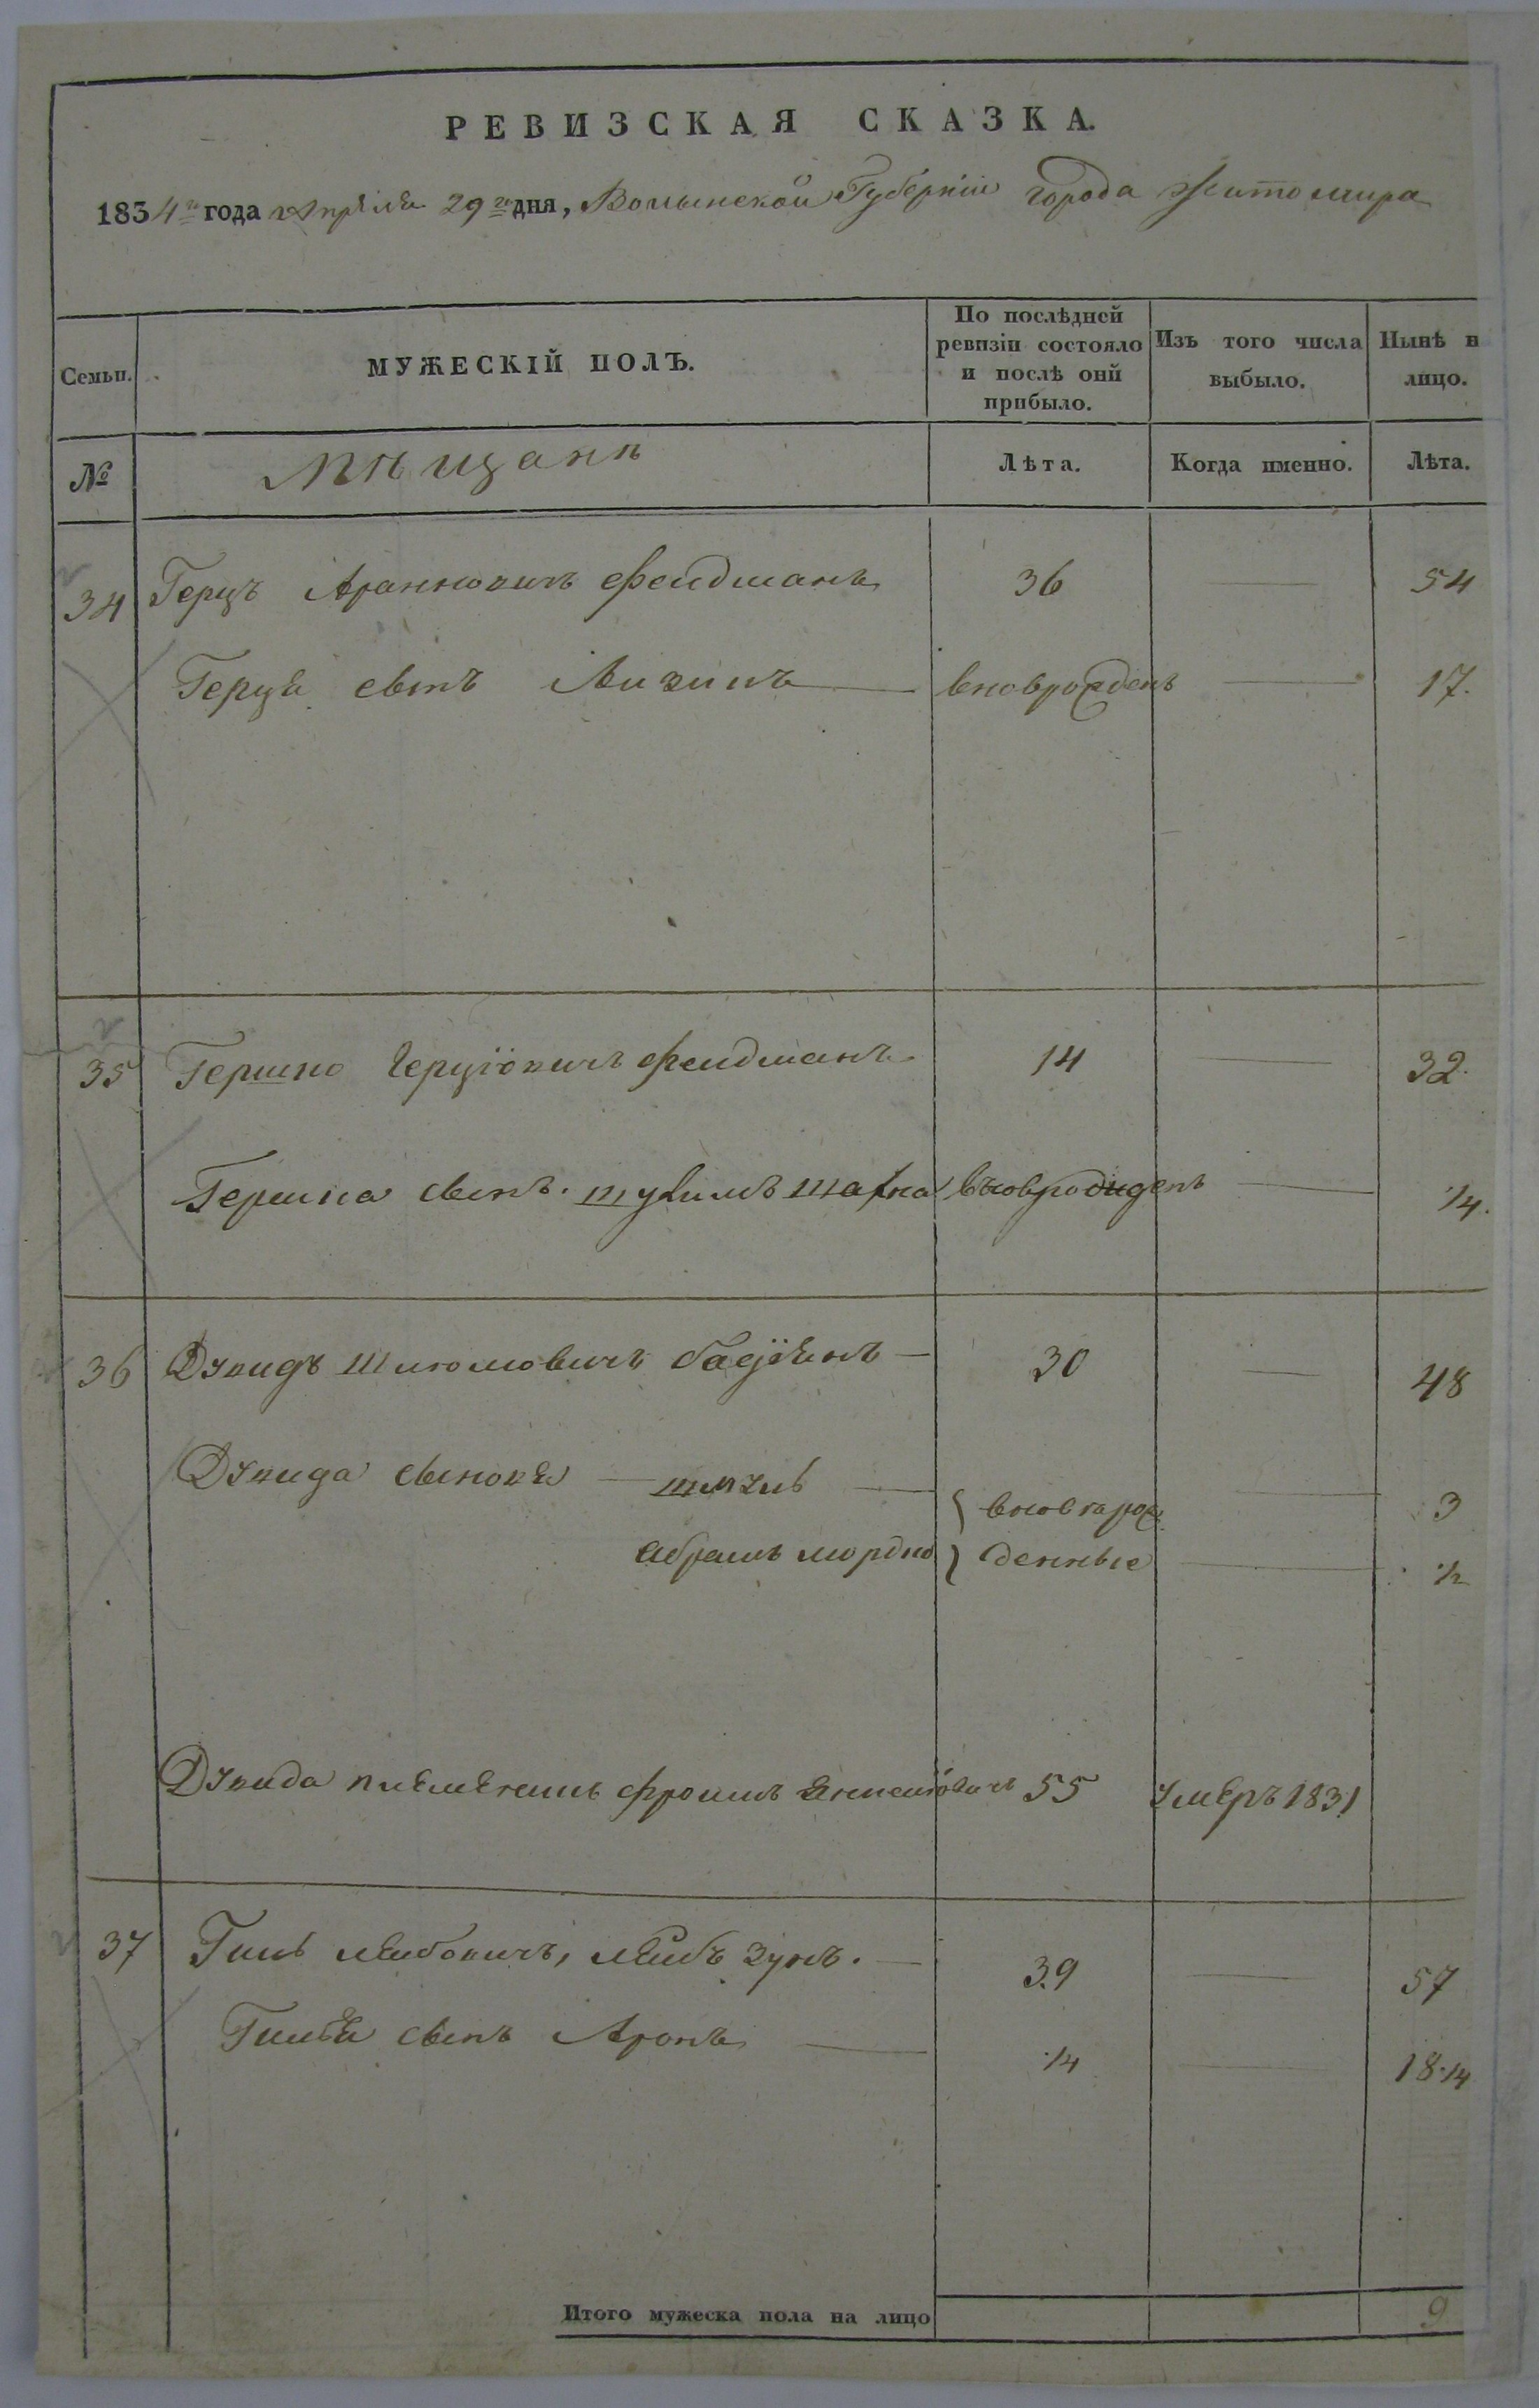 РЕВИЗСКАЯ СКАЗКА.
1834 го года Апрѣля 29 го дня, Волынской Губерніи города Житомира
Семьи. МУЖЕСКІЙ ПОЛЪ. По послѣдней ревизіи состояло и послѣ оній прибыло. Изъ того числа выбыло. Нынѣ н лицо.
№ Мѣщане Лѣта. Когда именно. Лѣта.
34 Герцъ Аранновичъ Фелдманъ 36 — 54
Герца сынъ Айзикъ — вноврожденъ — 17.
35 Гершко Герціовичъ Фелдманъ 14 — 32.
Гершка сынъ. вноврожденъ — 1/4.
36 Дувидъ Шломовичъ — 30 — 48
Дувида сыновя — — { вноварож — 3
Абрамъ Мордко } денные — 1/2
Дувида племенникъ Фроимъ 55 умеръ 1831
37 Гиль Лейбовичъ, Зунъ. — 39 — 57
сынъ Аронъ — 1/4 — 18 1/4
Итого мужеска пола на лицо 9